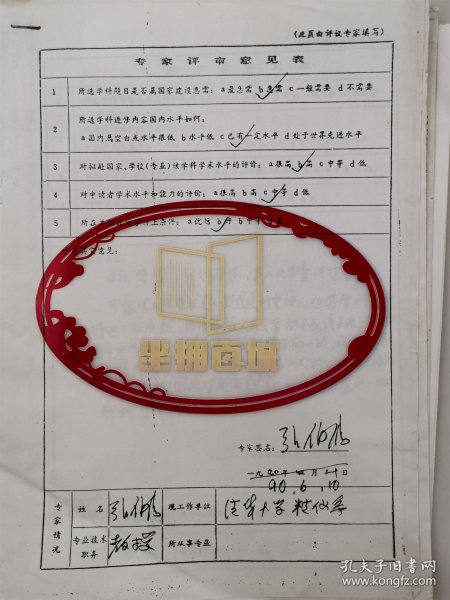 (此页由评议专家填写)
专家评审意见表
1 所选学科题目是否属国家建设急需: a最急需 b急需 c一般需要 d不需要
2 所选学科进修内容国内水平如何:
a国内属空白或水平很低 b水平低 c已有一定水平 d处于世界先进水平
3 对拟赴国家、学位(专业)该学科学术水平的评价: a很高 b高 c中等 d低
4 对申请者学术水平和能力的评价: a很高 b高 c中等 d低
5 所在
意见:
坐拥百城
专家签名:
90.6.10
专家情况
姓名
现工作单位 清华大学
专业技术职务 教授
所从事专业
孔夫子旧书网
www.kongfz.com